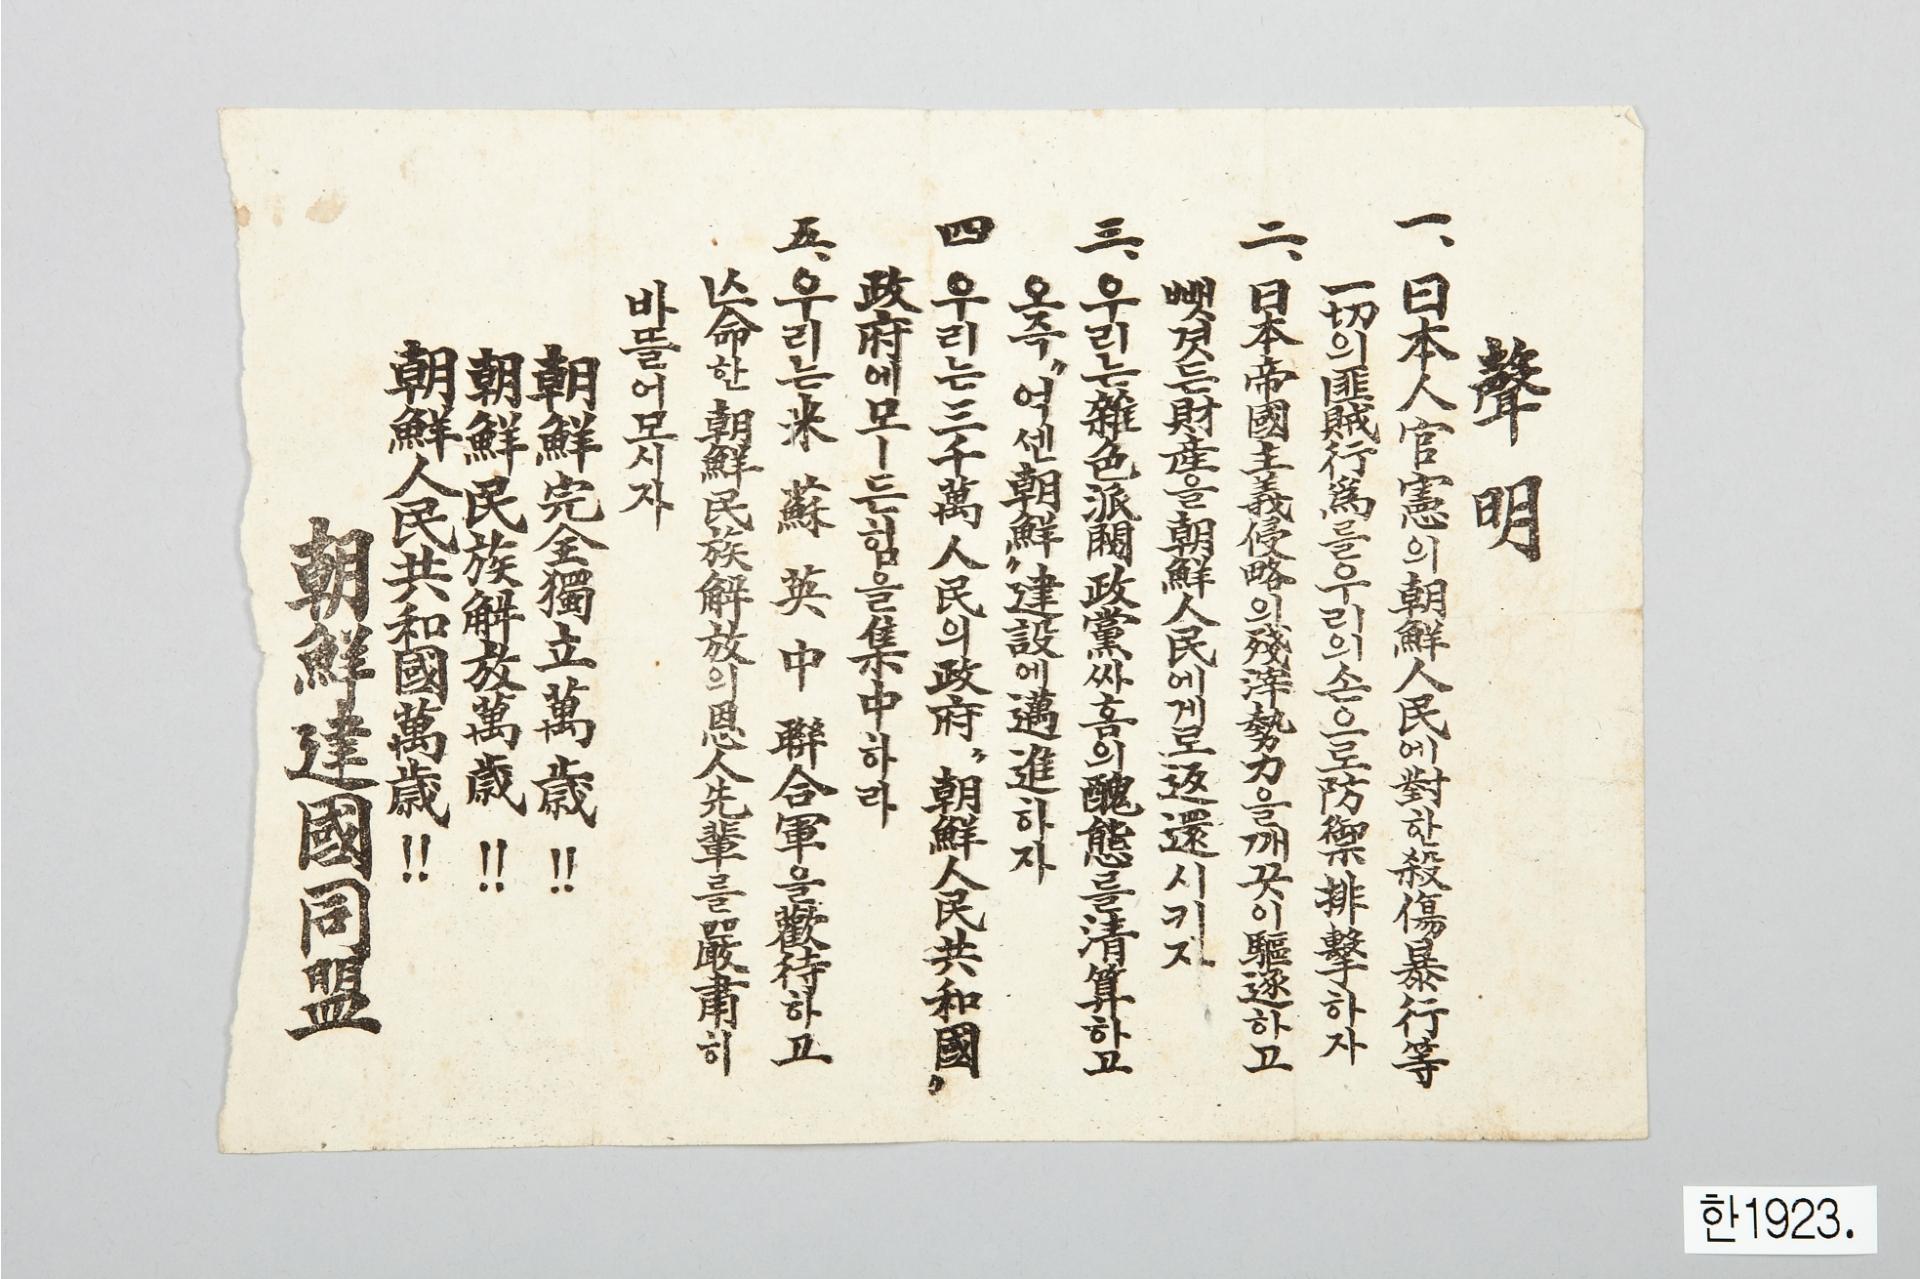 聲明
一、日本人官憲의朝鮮人民에對한殺傷暴行等
一切의匪賊行爲를우리의손으로防禦排擊하자
二、日本帝國主義侵略의殘滓勢力을깨끗이驅逐하고
뺏겻든財産을朝鮮人民에게로返還시키자
三、우리는雜色派閥政黨싸홈의醜態를清算하고
오즉〝역센朝鮮〟建設에邁進하자
四 우리는三千萬人民의政府〝朝鮮人民共和國〟
政府에모ー든힘을集中하라
五、우리는米 蘇 英 中 聯合軍을歡待하고
亡命한朝鮮民族解放의恩人先輩를嚴肅히
바뜰어모시자
朝鮮完全獨立萬歲!!
朝鮮民族解放萬歲!!
朝鮮人民共和國萬歲!!
朝鮮建國同盟
한1923.